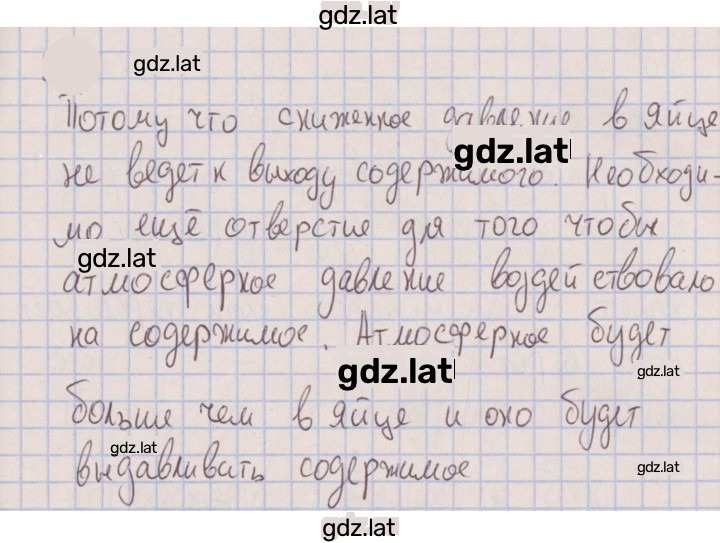 gdz.lat
gdz.lat
Потому что сниженное давление в яйце
gdz.lat
не ведет к выходу содержимого. Необходи-
мо ещё отверстие для того чтобы
gdz.lat
атмосферное давление воздействовало
на содержимое. Атмосферное будет
gdz.lat
gdz.lat
больше чем в яйце и оно будет
gdz.lat
выдавливать содержимое
gdz.lat
gdz.lat